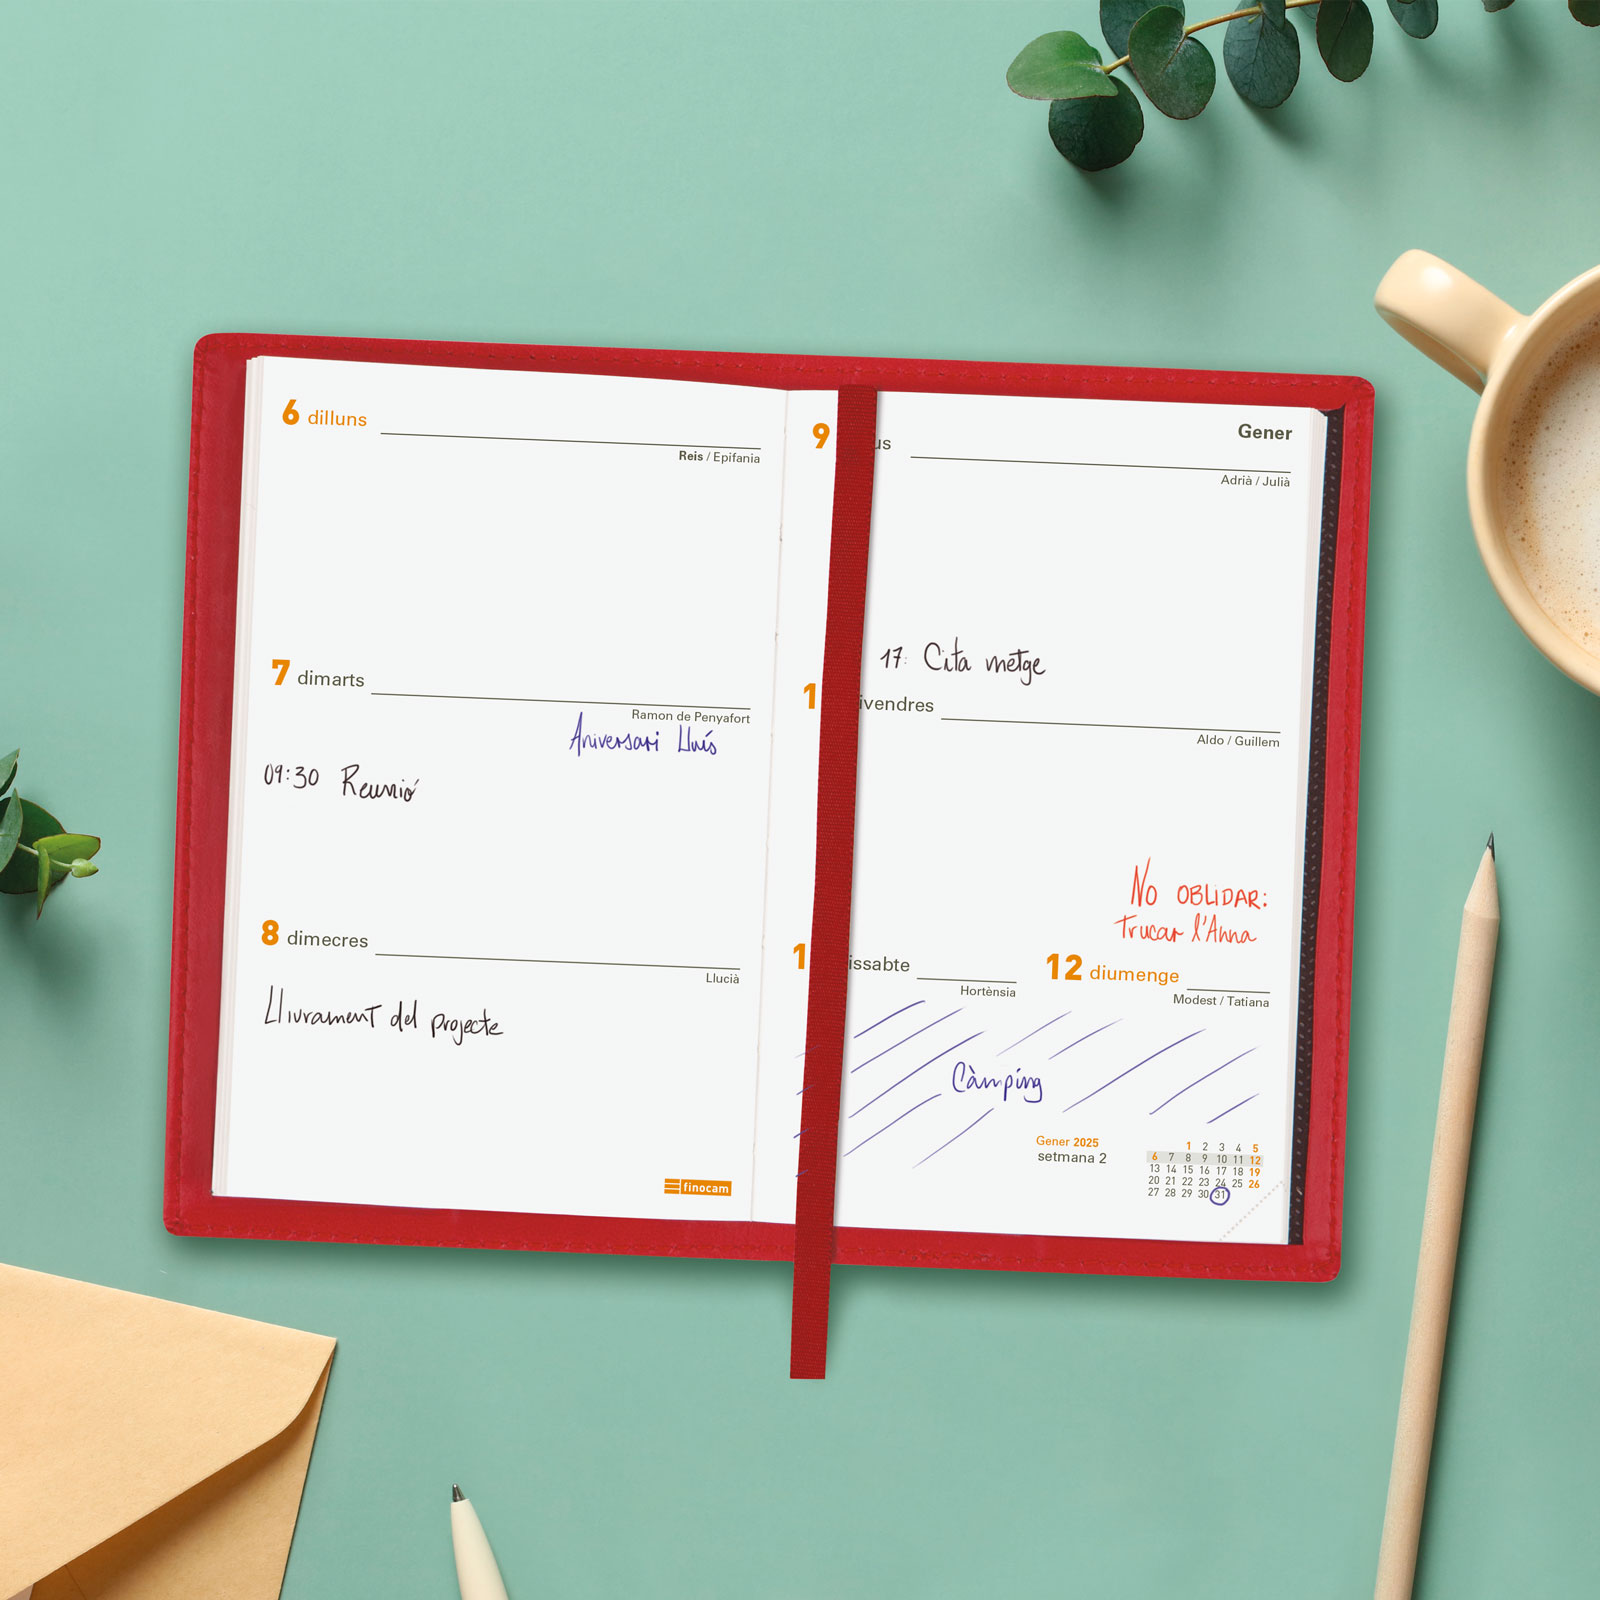 6 dilluns
Reis / Epifania
7 dimarts
Ramon de Penyafort
Aniversari Lluís
09:30 Reunió
8 dimecres
Llucià
Lliurament del projecte
finocam
9 us
Gener
Adrià / Julià
17: Cita metge
1 ivendres
Aldo / Guillem
No OBLIDAR:
Trucar l'Anna
1 issabte
Hortènsia
12 diumenge
Modest / Tatiana
Càmping
Gener 2025
setmana 2
1 2 3 4 5
6 7 8 9 10 11 12
13 14 15 16 17 18 19
20 21 22 23 24 25 26
27 28 29 30 31